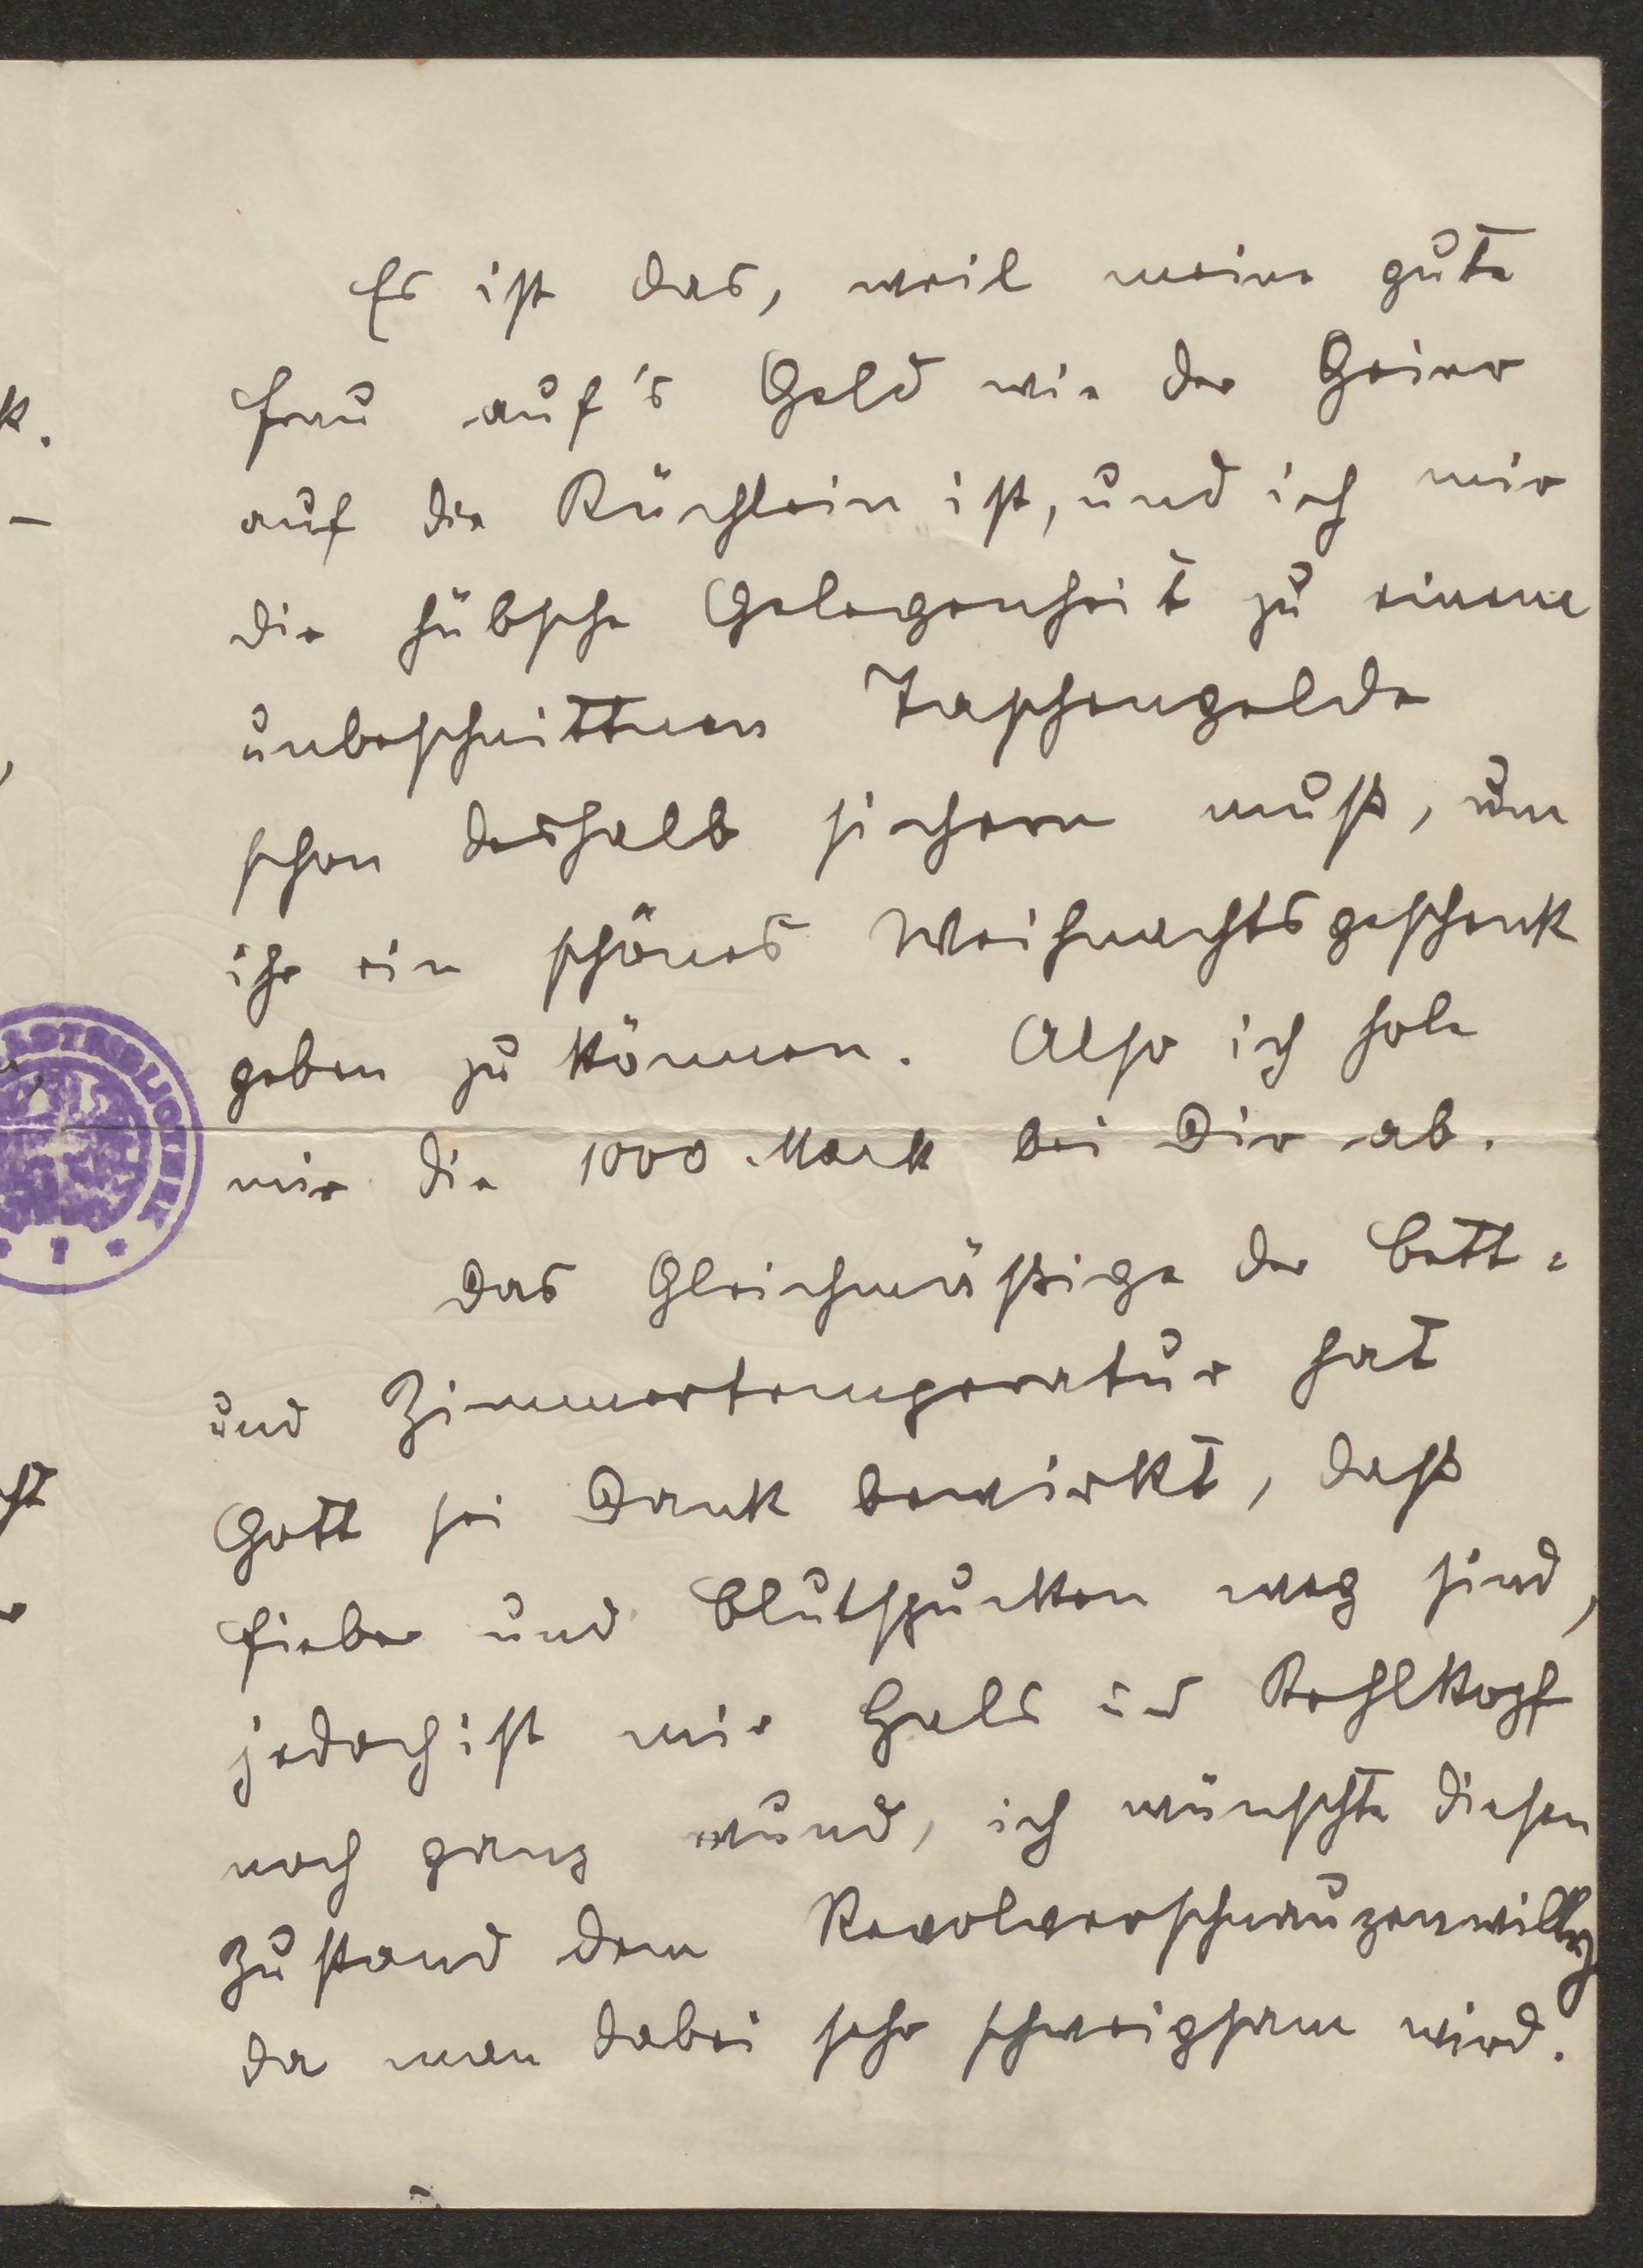 Es ist das, weil meine gute
Frau auf's Geld wie der Geier
auf die Küchlein ist, und ich mir
die hübsche Gelegenheit zu einem
unbeschnittnen Taschengelde
schon deshalb sichern muß, um
ihr ein schönes Weihnachtsgeschenk
geben zu können. Also ich hole
mir die 1000 Mark bei Dir ab.
Das Gleichmäßige der Bett=
und Zimmertemperatur hat
Gott sei Dank bewirkt, daß
Fieber und Blutspucken weg sind,
jedoch ist mir Hals und Kehlkopf
noch ganz wund, ich wünschte diesen
Zustand dem Revolverschnauzenwilly
da man dabei sehr schweigsam wird.